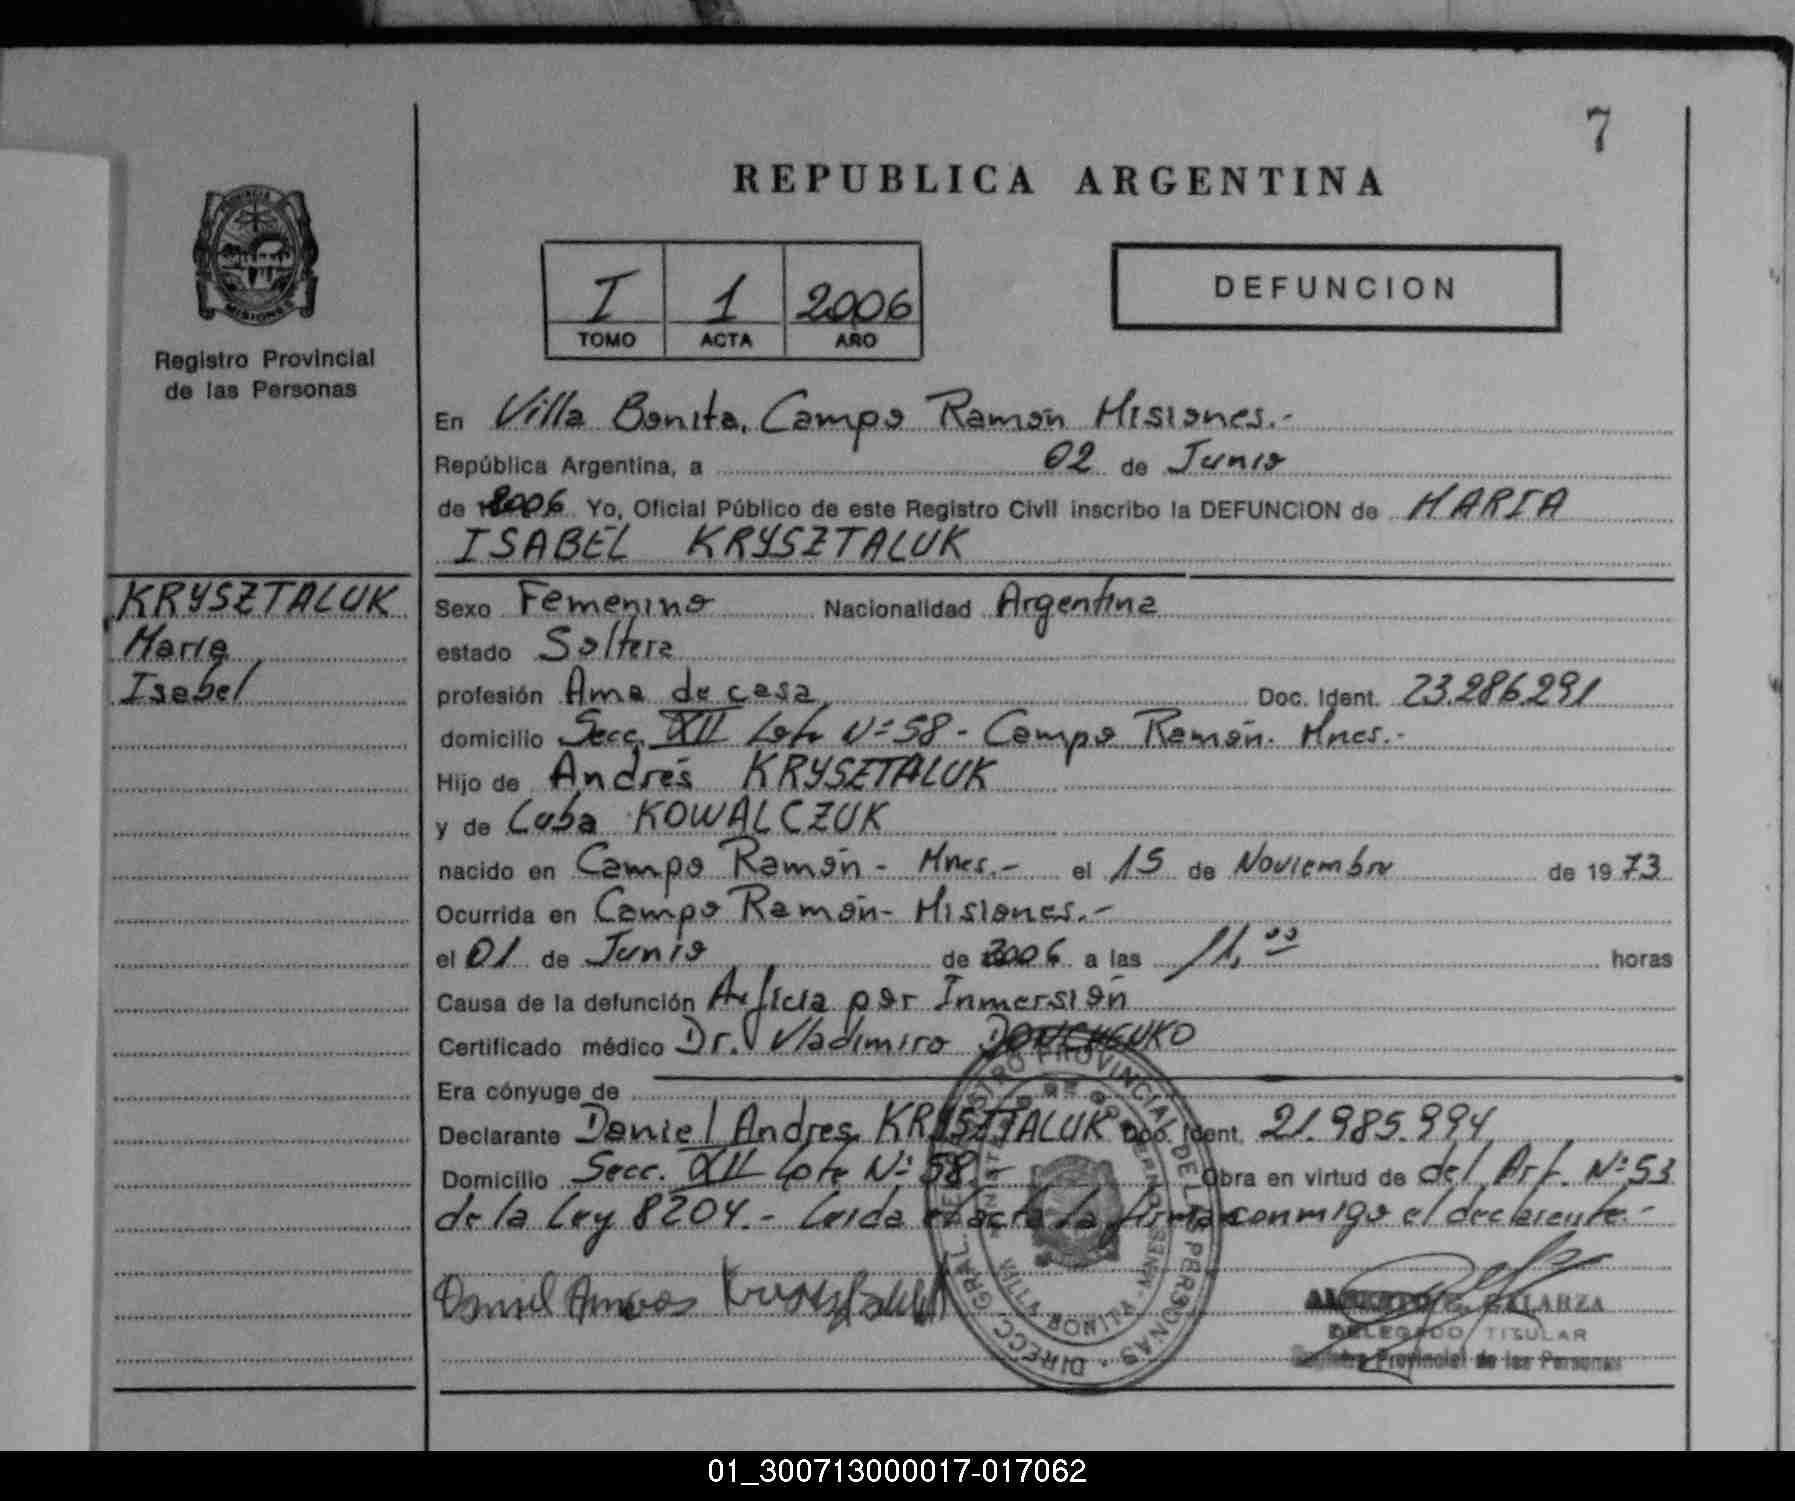 7
REPUBLICA ARGENTINA
I 1 2006
TOMO ACTA AÑO
DEFUNCION
MISIONES
Registro Provincial
de las Personas
KRYSZTALUK
Maria
Isabel
En Villa Bonita, Campo Ramón Misiones.-
República Argentina, a 02 de Junio
de 2006 Yo, Oficial Público de este Registro Civil inscribo la DEFUNCION de MARIA
ISABEL KRYSZTALUK
Sexo Femenino Nacionalidad Argentina
estado Soltera
profesión Ama de casa Doc. Ident. 23.286.291
domicilio Secc. XII Lote Nº 58 - Campo Ramón. Mnes.-
Hijo de Andrés KRYSZTALUK
y de Luba KOWALCZUK
nacido en Campo Ramón - Mnes.- el 15 de Noviembre de 1973
Ocurrida en Campo Ramón - Misiones.-
el 01 de Junio de 2006 a las 11,00 horas
Causa de la defunción Asficia por Inmersión
Certificado médico Dr. Vladimiro
Era cónyuge de
Declarante Daniel Andres KRYSZTALUK Doc. Ident. 21.985.994
Domicilio Secc. XII Lote Nº 58.- Obra en virtud de del Art. Nº 53
de la Ley 8204.- Leida el acta la firma conmigo el declarante.-
Daniel Andres
GALARZA
DELEGADO TITULAR
Registro Provincial de las Personas
DIRECC. GRAL. DEL REGISTRO PROVINCIAL DE LAS PERSONAS
VILLA BONITA - MNES
01_300713000017-017062